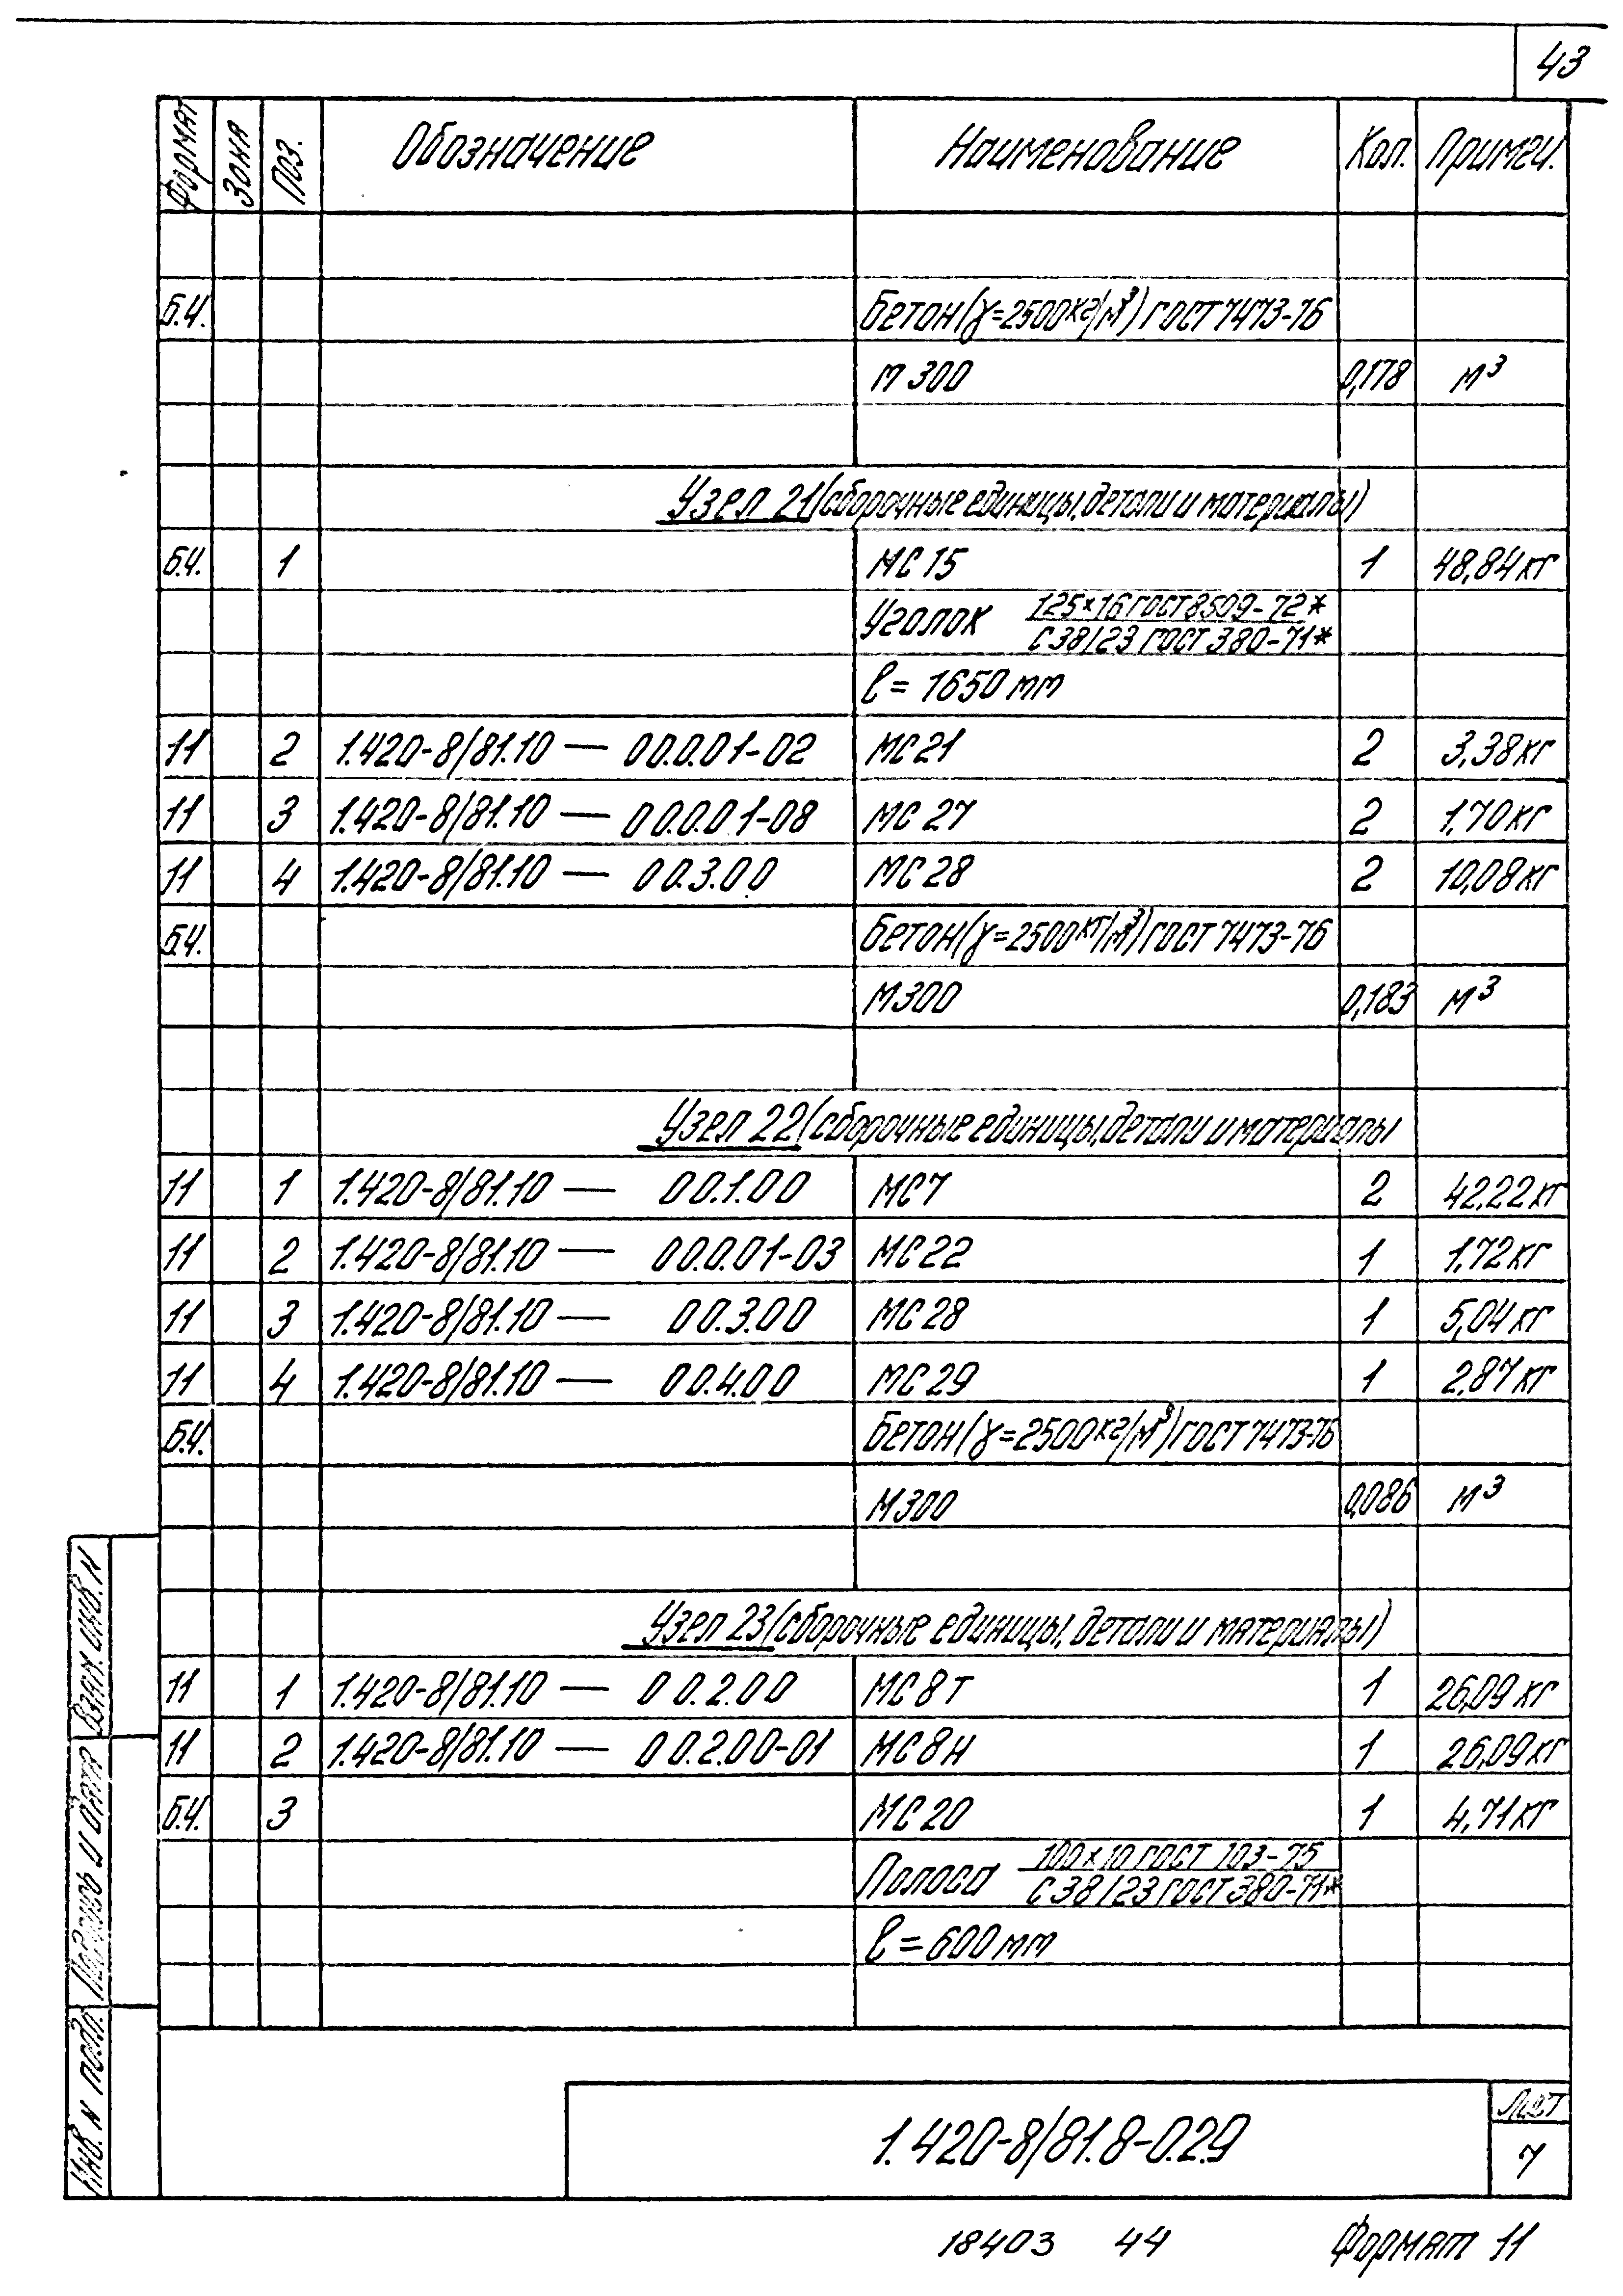 43
Формат Зона Поз. Обозначение Наименование Кол. Примеч.
Б.Ч. Бетон (γ=2500кг/м³) ГОСТ 7473-76
М 300 0,178 м³
Узел 21 (сборочные единицы, детали и материалы)
Б.Ч. 1 МС 15 1 48,84 кг
Уголок 125×16 ГОСТ 8509-72* / С 38/23 ГОСТ 380-71*
ℓ = 1650 мм
11 2 1.420-8/81.10 — 00.0.01-02 МС 21 2 3,38 кг
11 3 1.420-8/81.10 — 00.0.01-08 МС 27 2 1,70 кг
11 4 1.420-8/81.10 — 00.3.00 МС 28 2 10,08 кг
Б.Ч. Бетон (γ=2500кг/м³) ГОСТ 7473-76
М300 0,183 м³
Узел 22 (сборочные единицы, детали и материалы
11 1 1.420-8/81.10 — 00.1.00 МС7 2 42,22 кг
11 2 1.420-8/81.10 — 00.0.01-03 МС 22 1 1,72 кг
11 3 1.420-8/81.10 — 00.3.00 МС 28 1 5,04 кг
11 4 1.420-8/81.10 — 00.4.00 МС 29 1 2,87 кг
Б.Ч. Бетон (γ=2500кг/м³) ГОСТ 7473-76
М300 0,086 м³
Узел 23 (сборочные единицы, детали и материалы)
11 1 1.420-8/81.10 — 00.2.00 МС 8 т 1 26,09 кг
11 2 1.420-8/81.10 — 00.2.00-01 МС 8 н 1 26,09 кг
Б.Ч. 3 МС 20 1 4,71 кг
Полоса 100×10 ГОСТ 103-75 / С 38/23 ГОСТ 380-71*
ℓ = 600 мм
Взам. инв. N
Подпись и дата
Инв. N подл.
1.420-8/81.8-0.29
Лист
7
18403 44 Формат 11